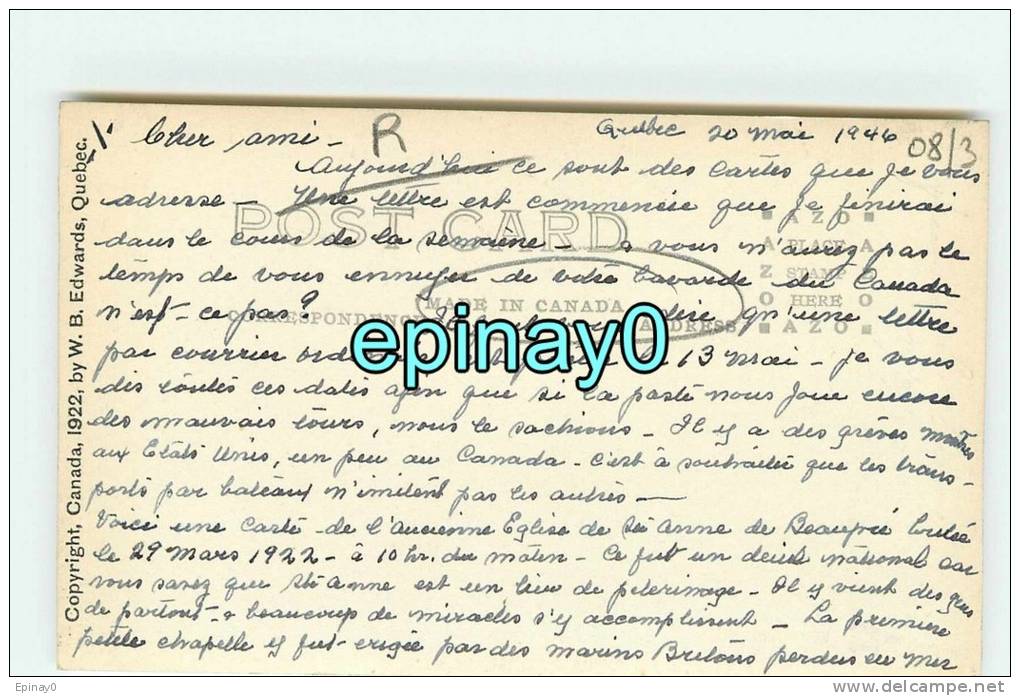 Cher ami - R Québec 20 Mai 1946 08/3
Aujourd'hui ce sont des cartes que je vous
adresse - Une lettre est commencée que je finirai
dans le cours de la semaine - vous n'aurez pas le
temps de vous ennuyer de votre bavarde du Canada
n'est-ce pas? dire qu'une lettre
par courrier 13 Mai - je vous
dis toutes ces dates afin que si la poste nous joue encore
des mauvais tours, nous le sachions - Il y a des grèves
aux Etats Unis, un peu au Canada - c'est à souhaiter que les trans-
ports par bateaux n'imitent pas les autres -
Voici une carte de l'Ancienne Eglise de Ste Anne de Beaupré brulée
le 29 Mars 1922 - à 10 hr. du matin - Ce fut un deuil national car
vous savez que Ste Anne est un lieu de pelerinage - Il y vient des gens
de partout - & beaucoup de miracles s'y accomplissent - La première
petite chapelle y fut erigée par des marins Bretons perdus en mer
POST CARD
MADE IN CANADA
CORRESPONDENCE
ADDRESS
AZO
PLACE
STAMP
HERE
AZO
Copyright, Canada, 1922, by W. B. Edwards, Quebec.
epinay0
Epinay0
www.delcampe.net